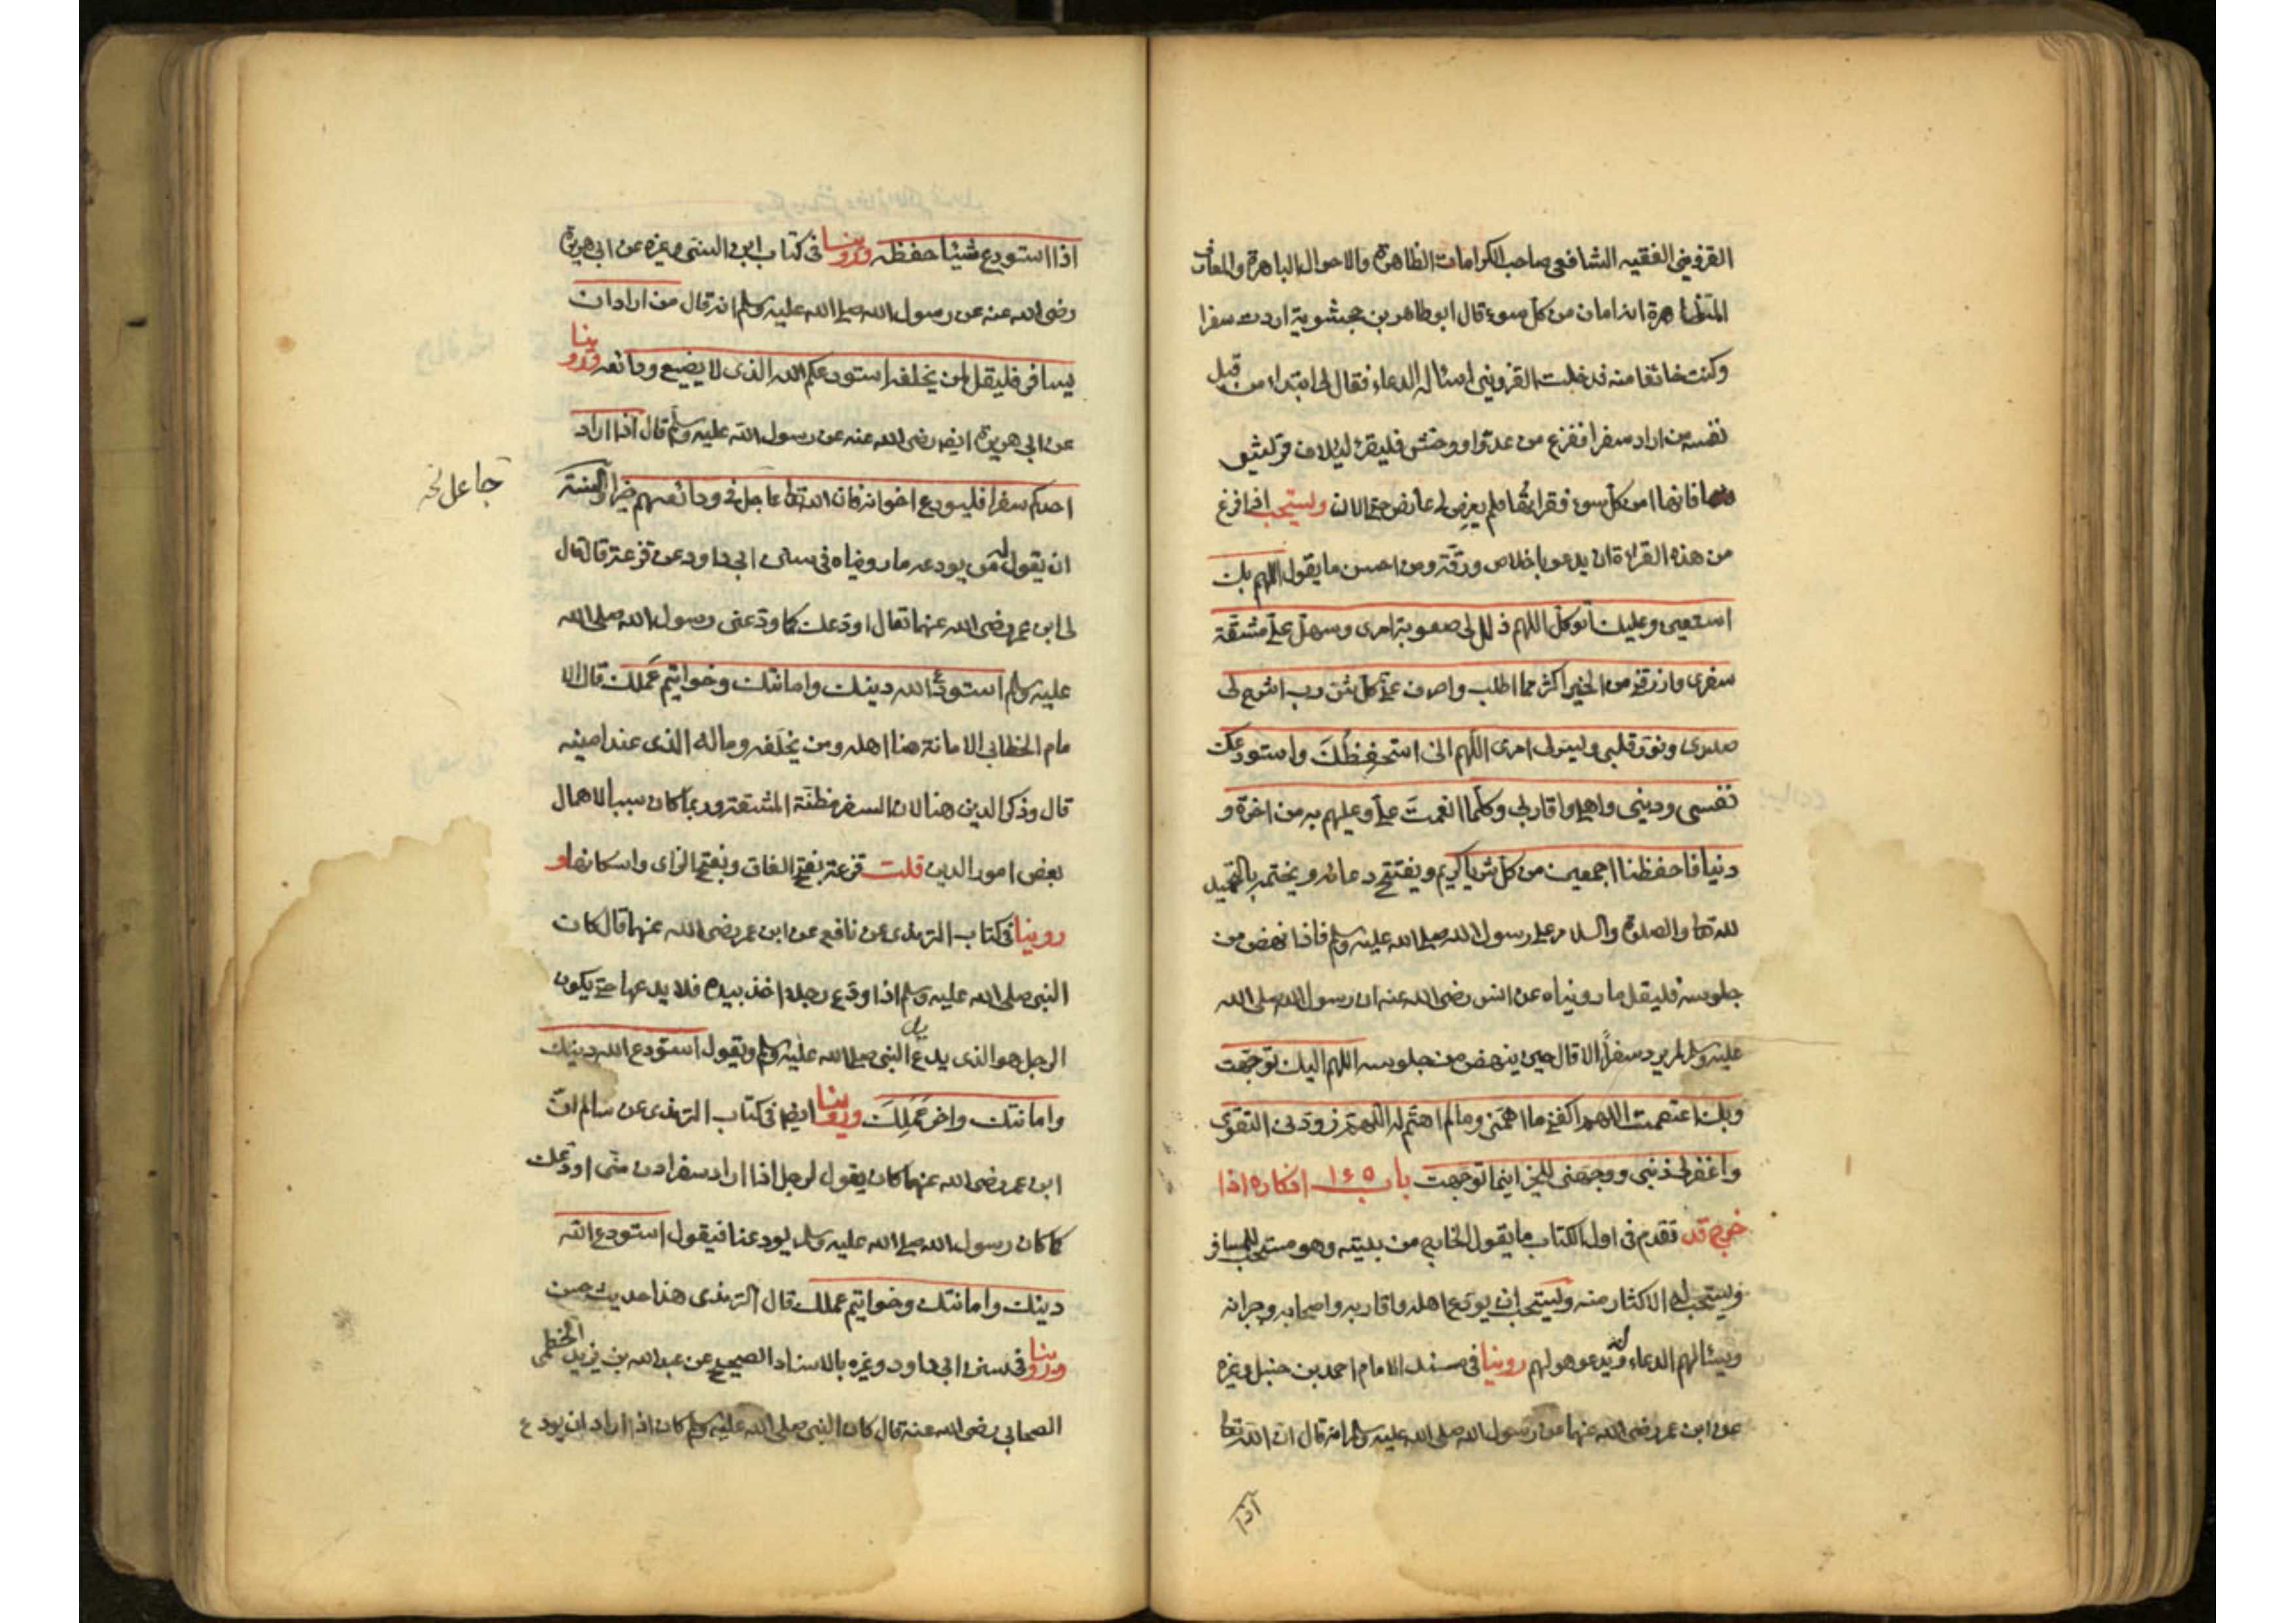 القزويني الفقيه الشافعي صاحب الكرامات الظاهرة والاحوال الباهرة والمعارف
المتظاهرة انه امان من كل سوء قال ابو طاهر بن جيشويه اردت سفرا
وكنت خائفا منه فدخلت القزويني اسئاله الدعاء فقال لى ابتداء من قبل
نفسه من اراد سفرا ففزع من عدوّ او وحش فليقرء ليلاف قريش
فانها امن كل سوء فقراتها فلم يعرض لى عارض حتى الان ويستحب اذا فرغ
من هذه القراءة ان يدعو باخلاص ورقّة ومن احسن ما يقول اللهم بك
استعين وعليك اتوكل اللهم ذلل لى صعوبة امرى وسهل علىّ مشقّة
سفرى وارزقنى من الخير اكثر مما اطلب واصرف عنى كل شرّ رب اشرح لى
صدرى ونوّر قلبى ويسر لى امرى اللهم انى استحفظك واستودعك
نفسى ودينى واهلى واقاربى وكلما انعمت علىّ وعليهم به من اخرة و
دنيا فاحفظنا اجمعين من كل شرّ يا كريم ويفتتح دعائه ويختمه بالتحميد
لله تعا والصلوة والسلام على رسول الله صلى الله عليه وسلم فاذا نهض من
جلوسه فليقل ما رويناه عن انس رضى الله عنه ان رسول الله صلى الله
عليه وسلم لم يرد سفرًا الا قال حين ينهض من جلوسه اللهم اليك توجّهت
وبك اعتصمت اللهم اكفنى ما اهمّنى وما لم اهتم له اللهم زودنى التقوى
واغفر لى ذنبى ووجهنى للخير اينما توجهت باب ١٤٥ اذكاره اذا
خرج قد تقدم فى اول الكتاب ما يقول الخارج من بيته وهو مستحب للمسافر
ويستحب له الاكثار منه ويستحب ان يودع اهله واقاربه واصحابه وجيرانه
ويسئالهم الدعاء له ويدعو هو لهم روينا فى مسند الامام احمد بن حنبل وغيره
عن ابن عمر رضى الله عنهما عن رسول الله صلى الله عليه وسلم انه قال ان الله تعا
اذا
اذا استودع شيئا حفظه وروينا فى كتاب ابن السنى وغيره عن ابى هريرة
رضى الله عنه عن رسول الله صلى الله عليه وسلم انه قال من اراد ان
يسافر فليقل لمن يخلفه استودعكم الله الذى لا يضيع ودائعه وروينا
عن ابى هريرة ايضا رضى الله عنه عن رسول الله عليه وسلم قال اذا اراد
احدكم سفرا فليودع اخوانه فان الله تعا جاعل فى ودائعهم خيرا والسنة
جاعل نخه
ان يقول له من يودعه ما رويناه فى سنن ابى داود عن قزعة قال قال
لى ابن عمر رضى الله عنهما تعال اودعك كما ودعنى رسول الله صلى الله
عليه وسلم استودع الله دينك وامانتك وخواتيم عملك قال الا
مام الخطابى الامانة هنا اهله ومن يخلفه وماله الذى عند امينه
قال وذكر الدين هنا لان السفر مظنّة المشقة وربما كان سببا لاهمال
بعض امور الدين قلت قزعة بفتح القاف وبفتح الزاى واسكانها و
روينا فى كتاب الترمذى عن نافع عن ابن عمر رضى الله عنهما قال كان
النبى صلى الله عليه وسلم اذا ودع رجلا اخذ بيده فلا يدعها حتى يكون
الرجل هو الذى يدع يد النبى صلى الله عليه وسلم ويقول استودع الله دينك
وامانتك واخر عملك وروينا ايضا فى كتاب الترمذى عن سالم ان
ابن عمر رضى الله عنهما كان يقول لرجل اذا اراد سفرا ادن منّى اودعك
كما كان رسول الله صلى الله عليه وسلم يودعنا فيقول استودع الله
دينك وامانتك وخواتيم عملك قال الترمذى هذا حديث حسن
وروينا فى سنن ابى داود وغيره بالاسناد الصحيح عن عبد الله بن يزيد الخطمى
الصحابى رضى الله عنه قال كان النبى صلى الله عليه وسلم كان اذا اراد ان يودع